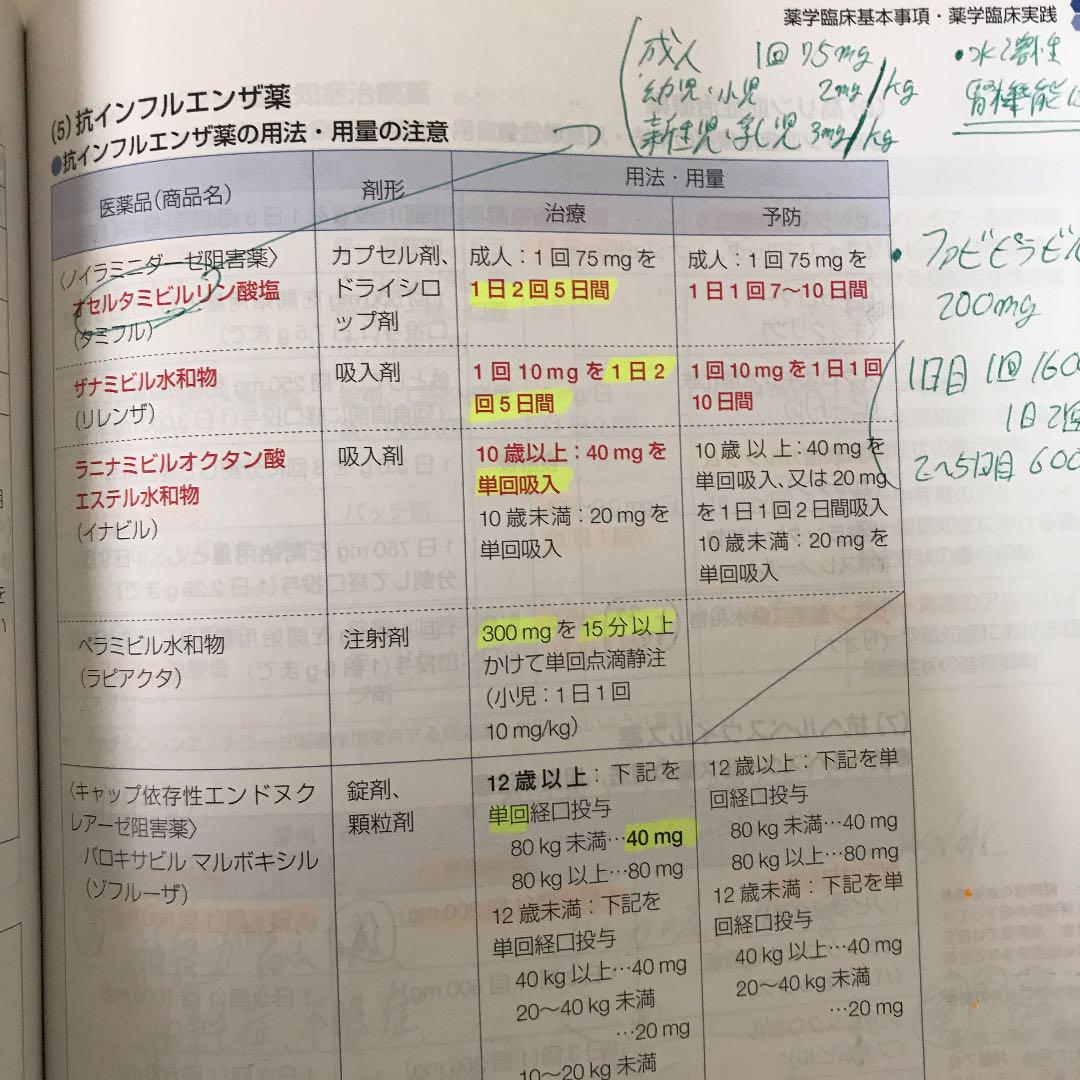 薬学臨床基本事項・薬学臨床実践
成人 1回 75mg
幼児・小児 2mg/kg
新生児・乳児 3mg/kg
・水溶性
腎機能
(5)抗インフルエンザ薬
●抗インフルエンザ薬の用法・用量の注意
医薬品(商品名)
剤形
用法・用量
治療
予防
〈ノイラミニダーゼ阻害薬〉
オセルタミビルリン酸塩
(タミフル)
カプセル剤、
ドライシロ
ップ剤
成人：1回75mgを
1日2回5日間
成人：1回75mgを
1日1回7〜10日間
ザナミビル水和物
(リレンザ)
吸入剤
1回10mgを1日2
回5日間
1回10mgを1日1回
10日間
ラニナミビルオクタン酸
エステル水和物
(イナビル)
吸入剤
10歳以上：40mgを
単回吸入
10歳未満：20mgを
単回吸入
10歳以上：40mgを
単回吸入、又は20mg
を1日1回2日間吸入
10歳未満：20mgを
単回吸入
ペラミビル水和物
(ラピアクタ)
注射剤
300mgを15分以上
かけて単回点滴静注
(小児：1日1回
10mg/kg)
〈キャップ依存性エンドヌク
レアーゼ阻害薬〉
バロキサビル マルボキシル
(ゾフルーザ)
錠剤、
顆粒剤
12歳以上：下記を
単回経口投与
80kg未満…40mg
80kg以上…80mg
12歳未満：下記を
単回経口投与
40kg以上…40mg
20〜40kg未満
…20mg
10〜20kg未満
12歳以上：下記を単
回経口投与
80kg未満…40mg
80kg以上…80mg
12歳未満：下記を単
回経口投与
40kg以上…40mg
20〜40kg未満
…20mg
・ファビピラビル
200mg
1日目 1回 160
1日2回
2〜5日目 600